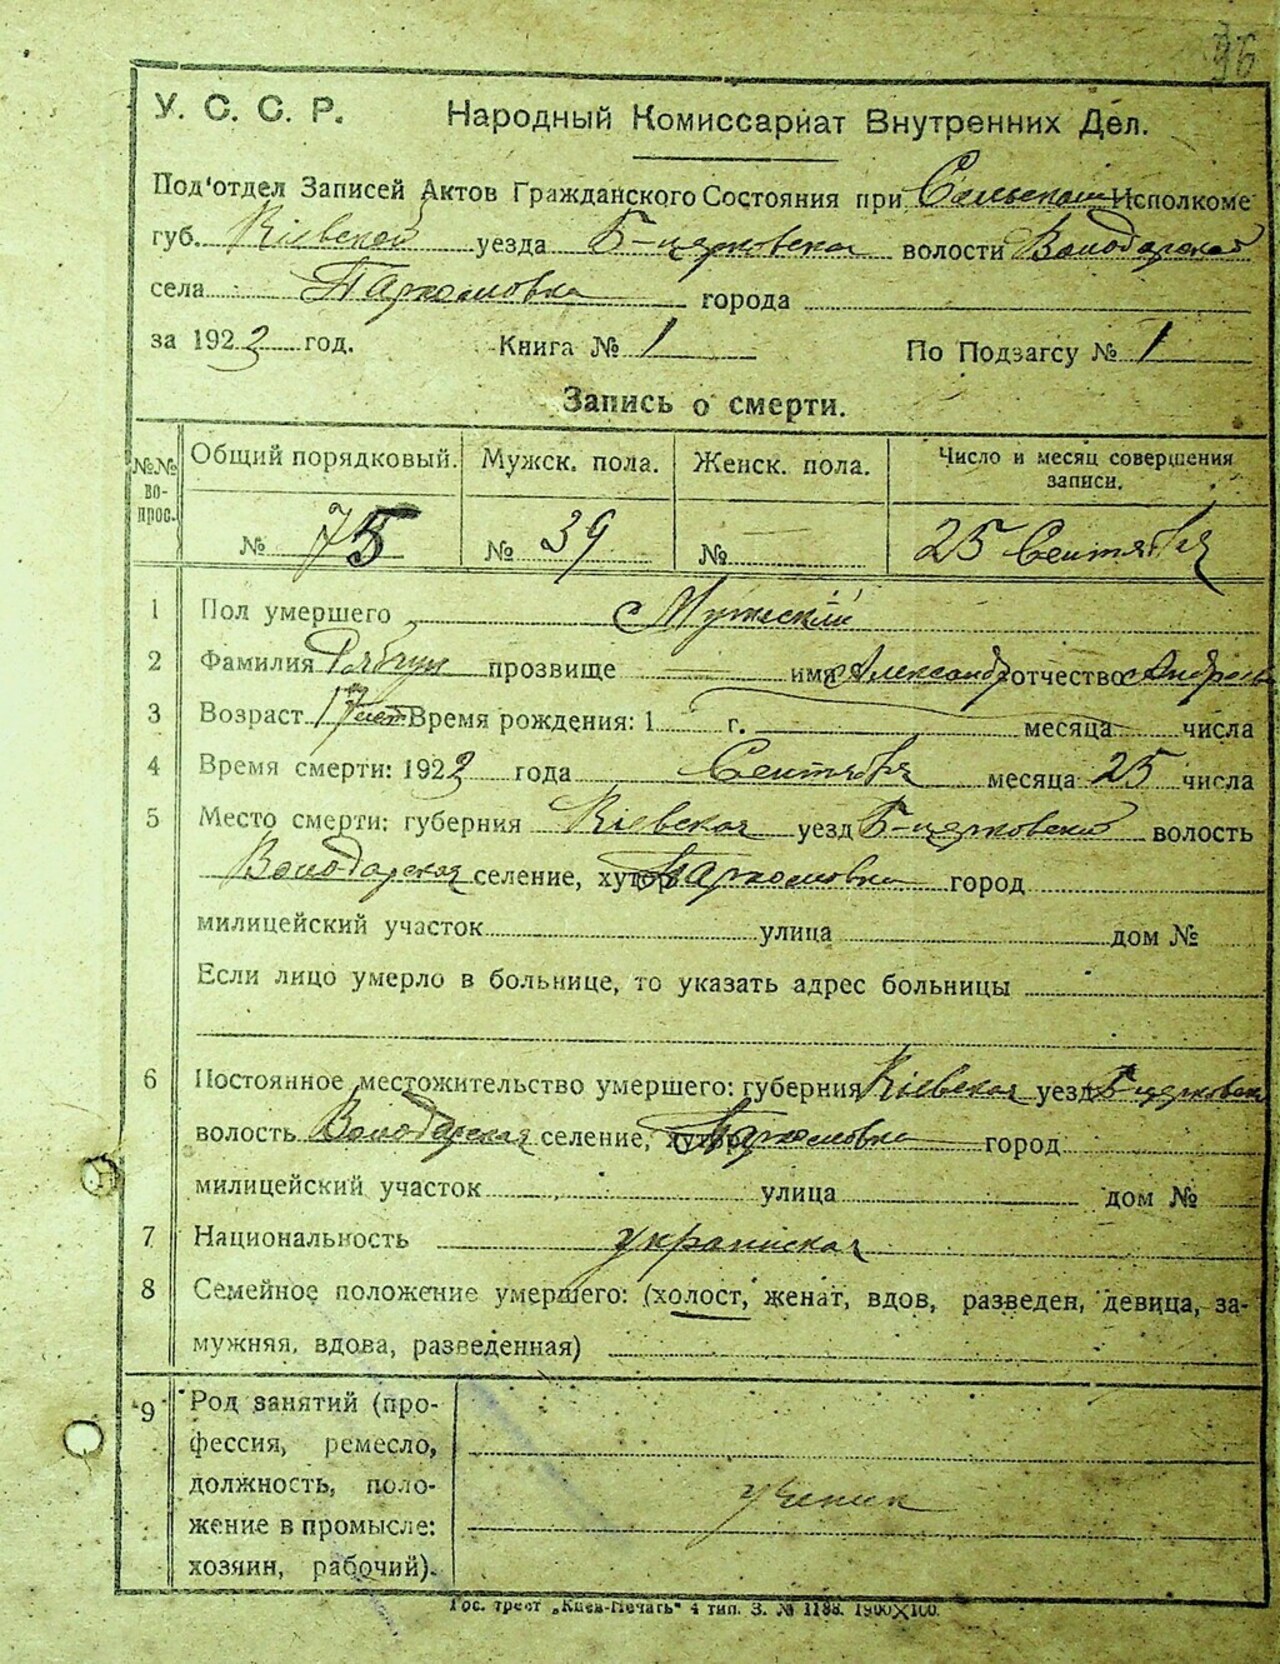 36
У. С. С. Р. Народный Комиссариат Внутренних Дел.
Под'отдел Записей Актов Гражданского Состояния при Сельском Исполкоме
губ. Кіевской уезда Б-церковского волости Володарской
села Пархомовка города
за 1923 год. Книга № 1 По Подзагсу № 1
Запись о смерти.
№№ во-прос. Общий порядковый. Мужск. пола. Женск. пола. Число и месяц совершения записи.
№ 75 № 39 № 25 Сентября
1 Пол умершего Мужескій
2 Фамилия Рябчун прозвище имя Александр отчество Андреев
3 Возраст 17 лет Время рождения: 1 г. месяца числа
4 Время смерти: 1923 года Сентября месяца 25 числа
5 Место смерти: губерния Кіевская уезд Б-церковский волость
Володарская селение, хутор Пархомовка город
милицейский участок улица дом №
Если лицо умерло в больнице, то указать адрес больницы
6 Постоянное местожительство умершего: губерния Кіевская уезд Б-церковск
волость Володарская селение, хутор Пархомовка город
милицейский участок улица дом №
7 Национальность украинская
8 Семейное положение умершего: (холост, женат, вдов, разведен, девица, за-
мужняя, вдова, разведенная)
9 Род занятий (про-
фессия, ремесло,
должность, поло-
жение в промысле:
хозяин, рабочий).
ученик
Гос. трест „Киев-Печать" 4 тип. З. № 1188. 1900X100.